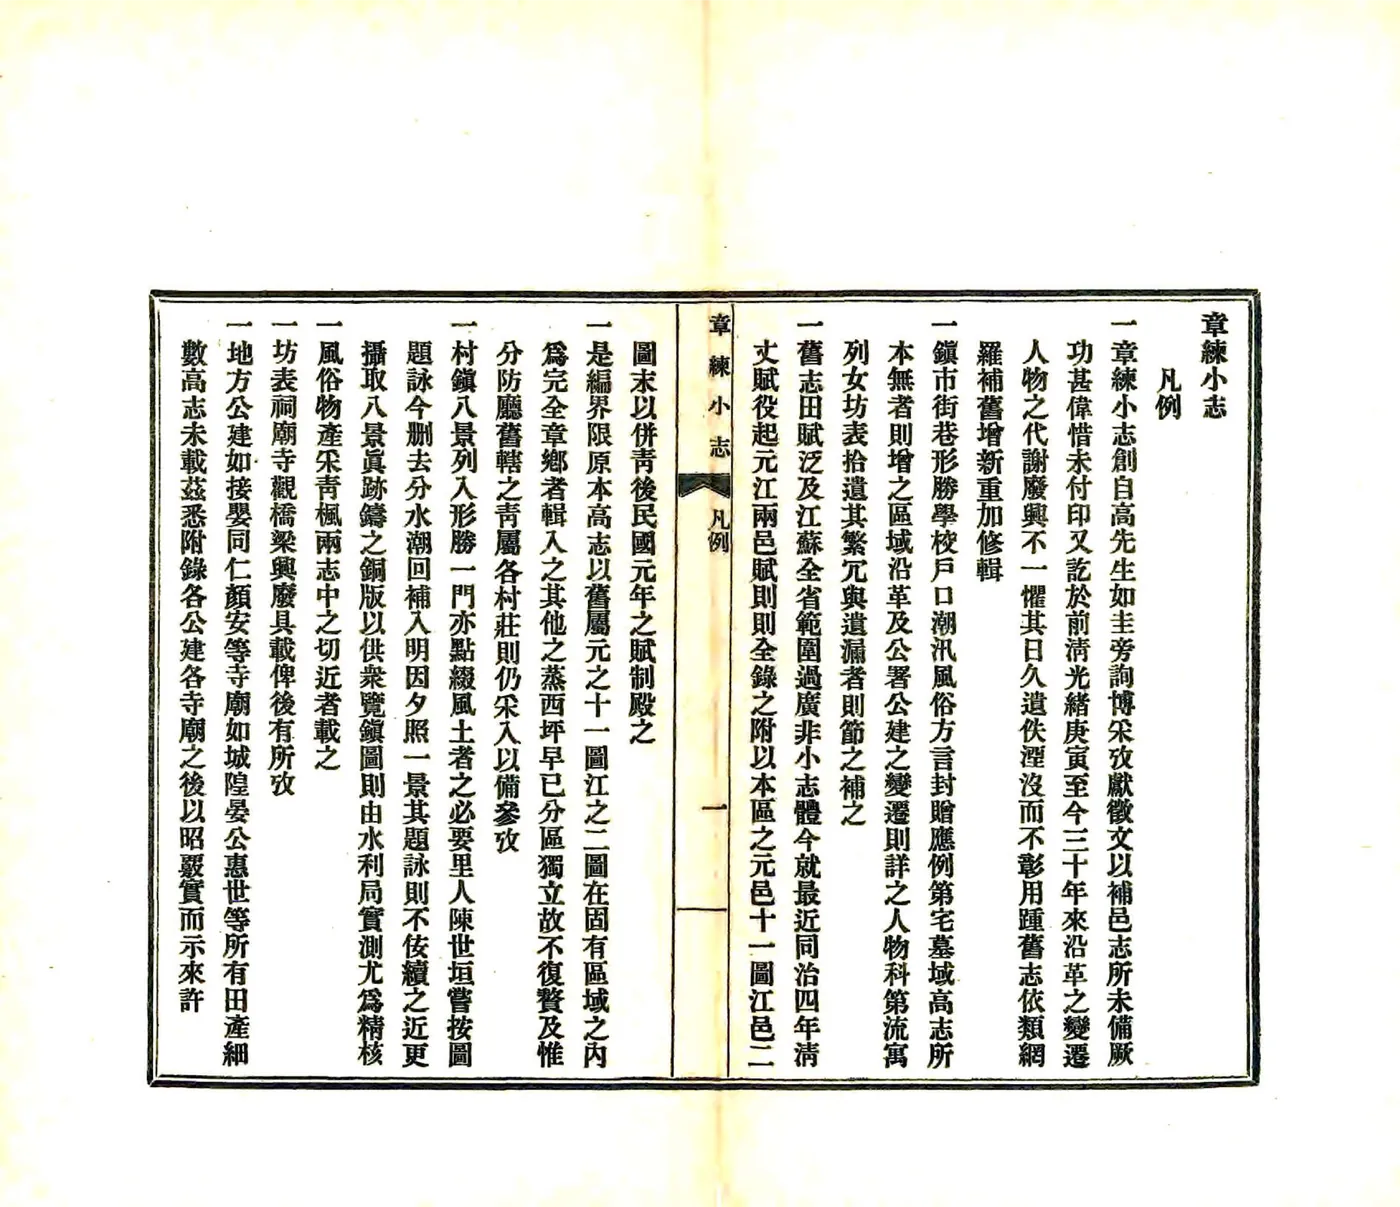 章練小志
凡例
一章練小志創自高先生如圭旁詢博采攷獻徵文以補邑志所未備厥
功甚偉惜未付印又訖於前淸光緒庚寅至今三十年來沿革之變遷
人物之代謝廢興不一懼其日久遺佚湮沒而不彰用踵舊志依類網
羅補舊增新重加修輯
一鎭市街巷形勝學校戶口潮汛風俗方言封贈應例第宅墓域高志所
本無者則增之區域沿革及公署公建之變遷則詳之人物科第流寓
列女坊表拾遺其繁冗與遺漏者則節之補之
一舊志田賦泛及江蘇全省範圍過廣非小志體今就最近同治四年淸
丈賦役起元江兩邑賦則則全錄之附以本區之元邑十一圖江邑二
章練小志
凡例
一
圖末以併靑後民國元年之賦制殿之
一是編界限原本高志以舊屬元之十一圖江之二圖在固有區域之內
爲完全章鄉者輯入之其他之蒸西坪早已分區獨立故不復贅及惟
分防廳舊轄之靑屬各村莊則仍采入以備參攷
一村鎭八景列入形勝一門亦點綴風土者之必要里人陳世垣嘗按圖
題詠今删去分水潮回補入明因夕照一景其題詠則不佞續之近更
攝取八景眞跡鑄之銅版以供衆覽鎭圖則由水利局實測尤爲精核
一風俗物產采靑楓兩志中之切近者載之
一坊表祠廟寺觀橋梁興廢具載俾後有所攷
一地方公建如接嬰同仁顏安等寺廟如城隍晏公惠世等所有田產細
數高志未載茲悉附錄各公建各寺廟之後以昭覈實而示來許